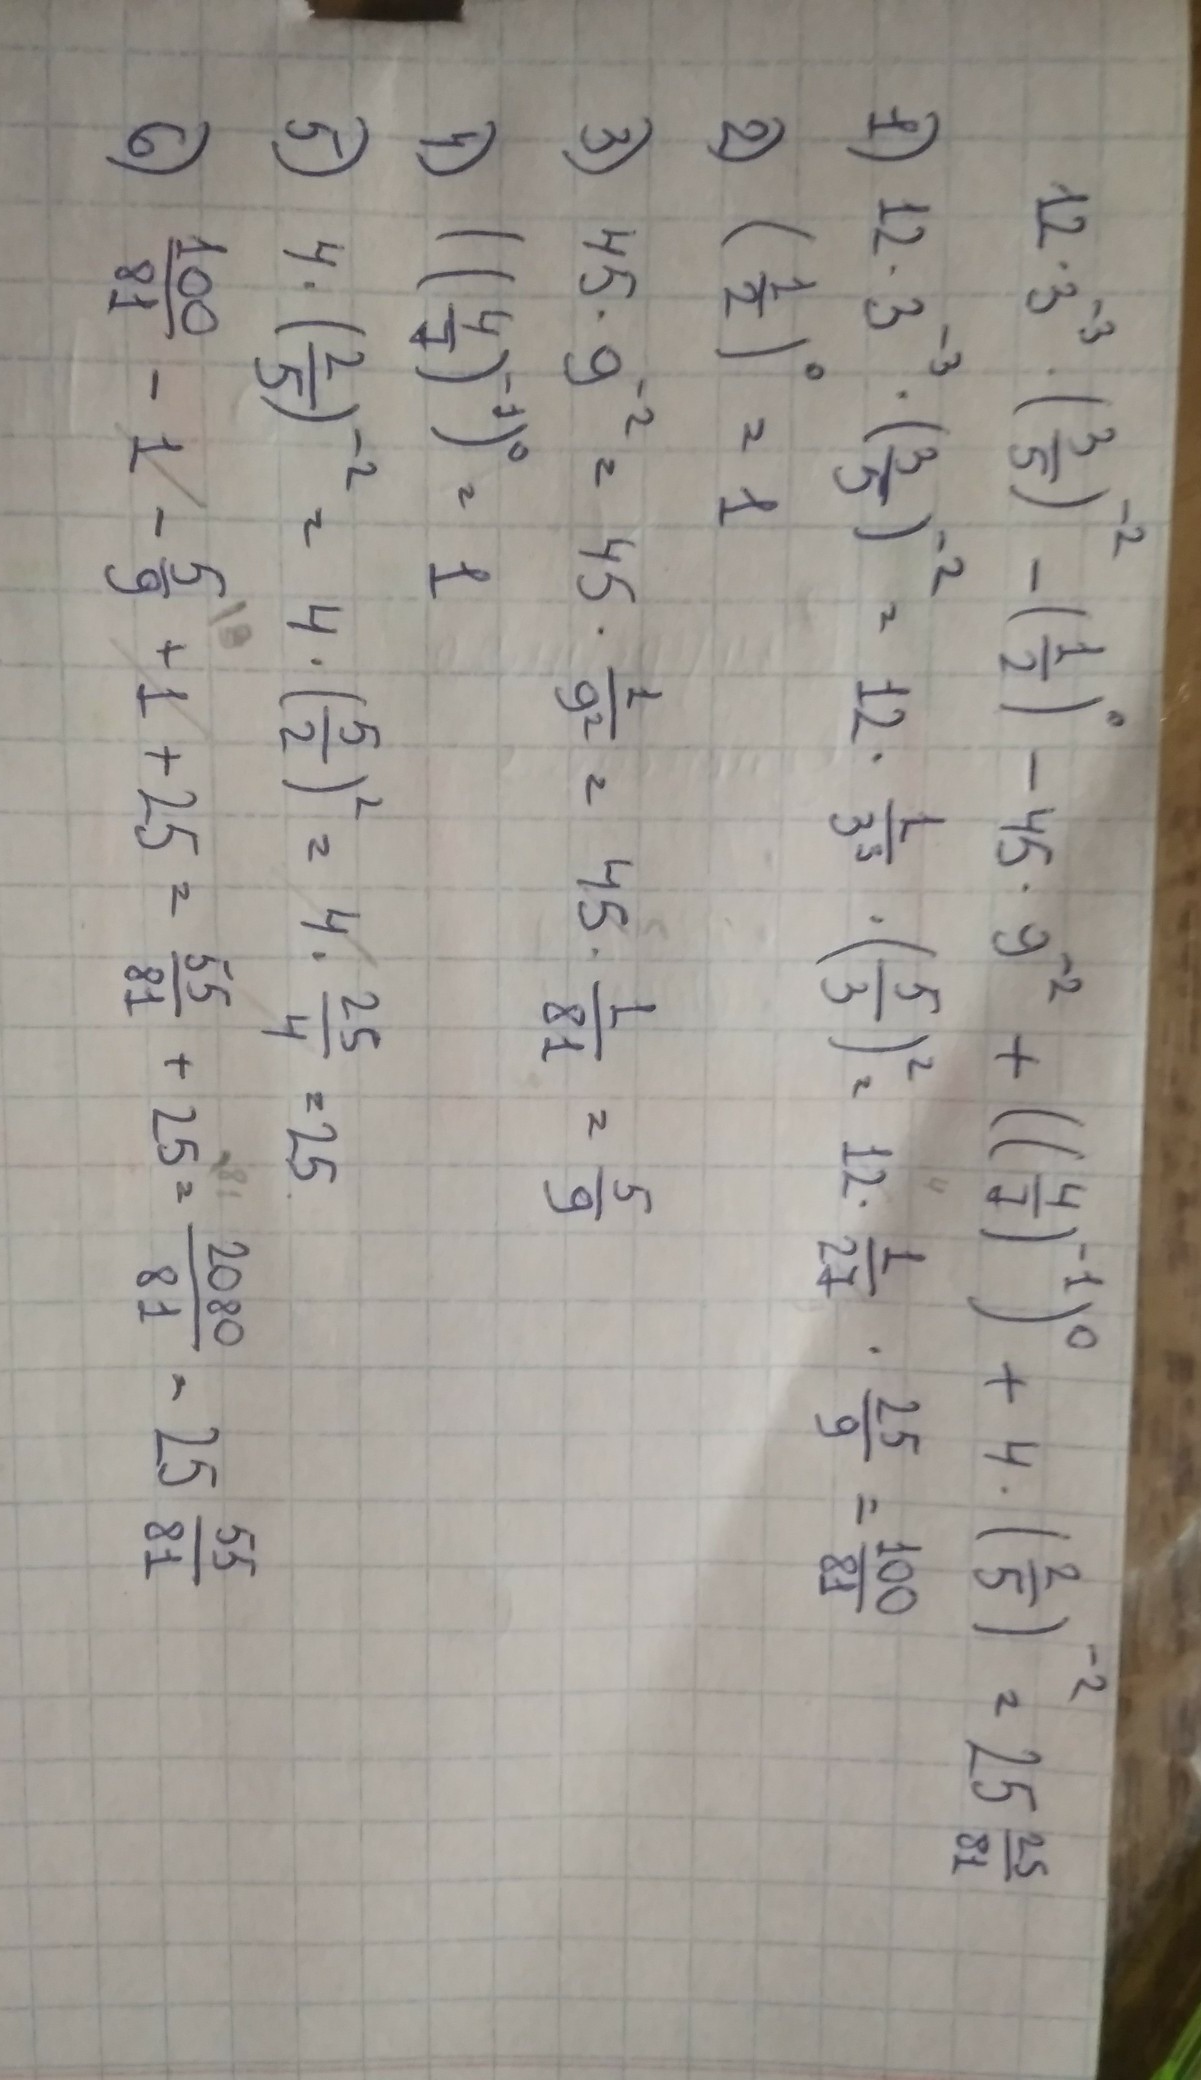 12 · 3⁻³ · (3/5)⁻² − (1/2)⁰ − 45 · 9⁻² + ((4/7)⁻¹)⁰ + 4 · (2/5)⁻² = 25 25/81
1) 12 · 3⁻³ · (3/5)⁻² = 12 · 1/3³ · (5/3)² = 12 · 1/27 · 25/9 = 100/81
2) (1/2)⁰ = 1
3) 45 · 9⁻² = 45 · 1/9² = 45 · 1/81 = 5/9
4) ((4/7)⁻¹)⁰ = 1
5) 4 · (2/5)⁻² = 4 · (5/2)² = 4 · 25/4 = 25
6) 100/81 − 1 − 5/9 + 1 + 25 = 55/81 + 25 = 2080/81 = 25 55/81